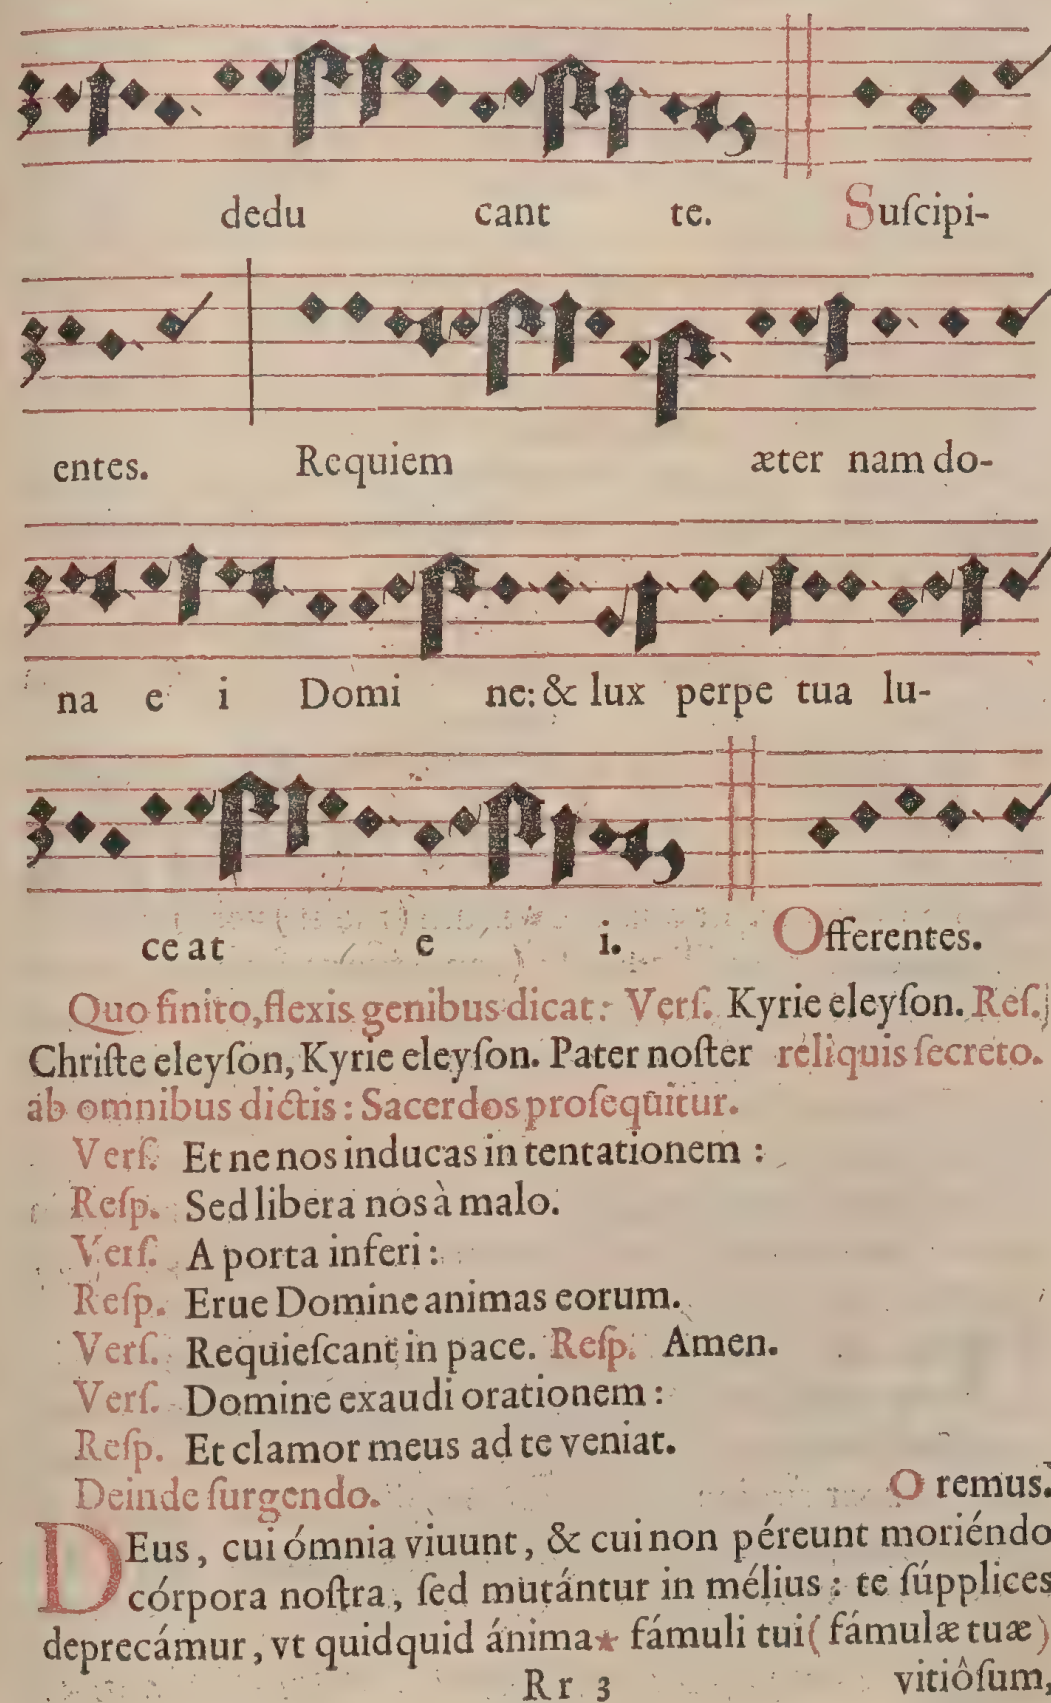 dedu cant te. Suſcipi-
entes. Requiem æter nam do-
na e i Domi ne: & lux perpe tua lu-
ce at e i. Offerentes.
Quo finito, flexis genibus dicat: Verſ. Kyrie eleyſon. Reſ.
Chriſte eleyſon, Kyrie eleyſon. Pater noſter reliquis ſecreto.
ab omnibus dictis: Sacerdos proſequitur.
Verſ. Et ne nos inducas in tentationem :
Reſp. Sed libera nos à malo.
Verſ. A porta inferi :
Reſp. Erue Domine animas eorum.
Verſ. Requieſcant in pace. Reſp. Amen.
Verſ. Domine exaudi orationem :
Reſp. Et clamor meus ad te veniat.
Deinde ſurgendo. O remus.
DEus, cui ómnia viuunt, & cui non péreunt moriéndo
córpora noſtra, ſed mutántur in mélius : te ſúpplices
deprecámur, vt quidquid ánima* fámuli tui (fámulæ tuæ)
Rr 3 vitiôſum,